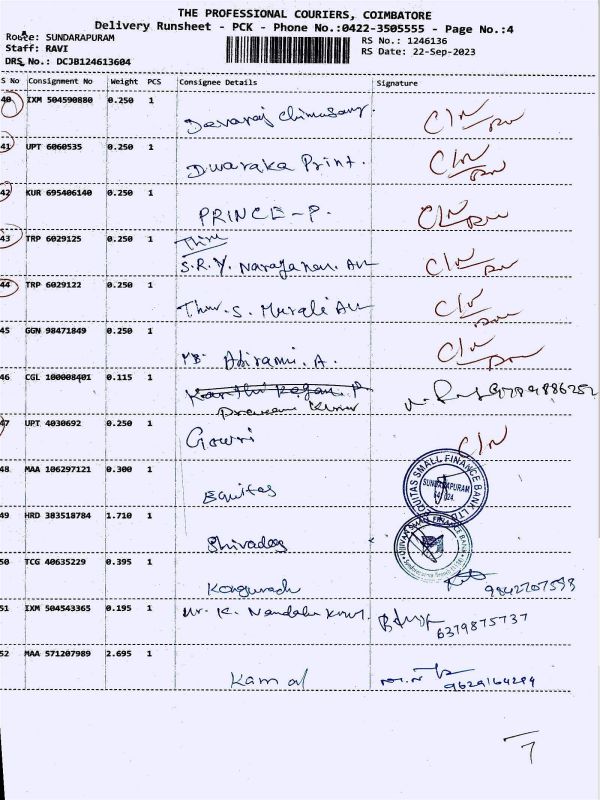 THE PROFESSIONAL COURIERS, COIMBATORE
Delivery Runsheet - PCK - Phone No.:0422-3505555 - Page No.:4
Route: SUNDARAPURAM
RS No.: 1246136
Staff: RAVI
RS Date: 22-Sep-2023
DRS No.: DCJB124613604
S No Consignment No Weight PCS Consignee Details Signature
40 IXM 504590880 0.250 1
Devaraj C/N
41 UPT 6060535 0.250 1
Dwaraka Print. C/N
42 KUR 695406140 0.250 1
PRINCE-P. C/N
43 TRP 6029125 0.250 1
S.R.Y. Narayanan. C/N
44 TRP 6029122 0.250 1
S. Murali C/N
45 GGN 98471849 0.250 1
Abirami. A. C/N
46 CGL 100008401 0.115 1
Praveen Kumar
47 UPT 4030692 0.250 1
Gowri C/N
48 MAA 106297121 0.300 1
Equitas
EQUITAS SMALL FINANCE BANK LTD
SUNDARAPURAM
49 HRD 383518784 1.710 1
Shivadas
UJJIVAN SMALL FINANCE BANK
50 TCG 40635229 0.395 1
51 IXM 504543365 0.195 1
Mr. K. 6379875737
52 MAA 571207989 2.695 1
Kamal
7